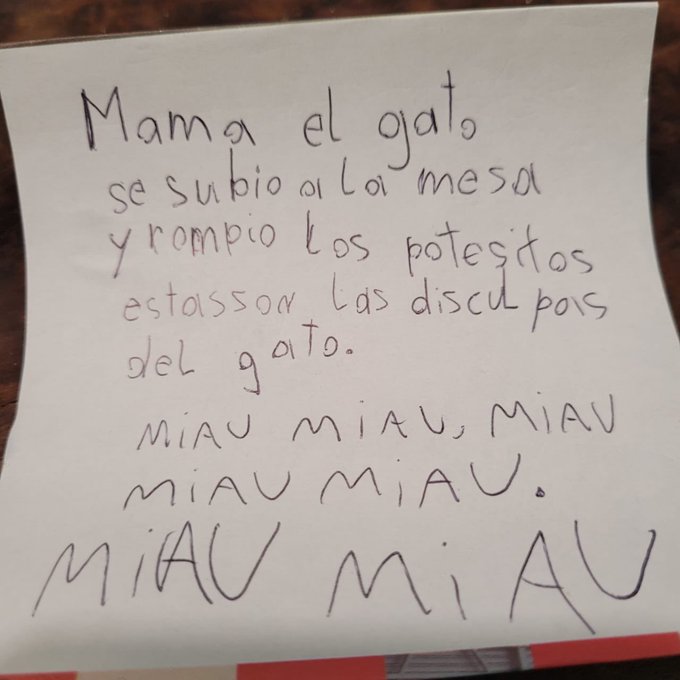 Mama el gato
se subio a la mesa
y rompio los potesitos
estasson las disculpas
del gato.
MiAU MiAU, MiAU
MiAU MiAU.
MiAU MiAU